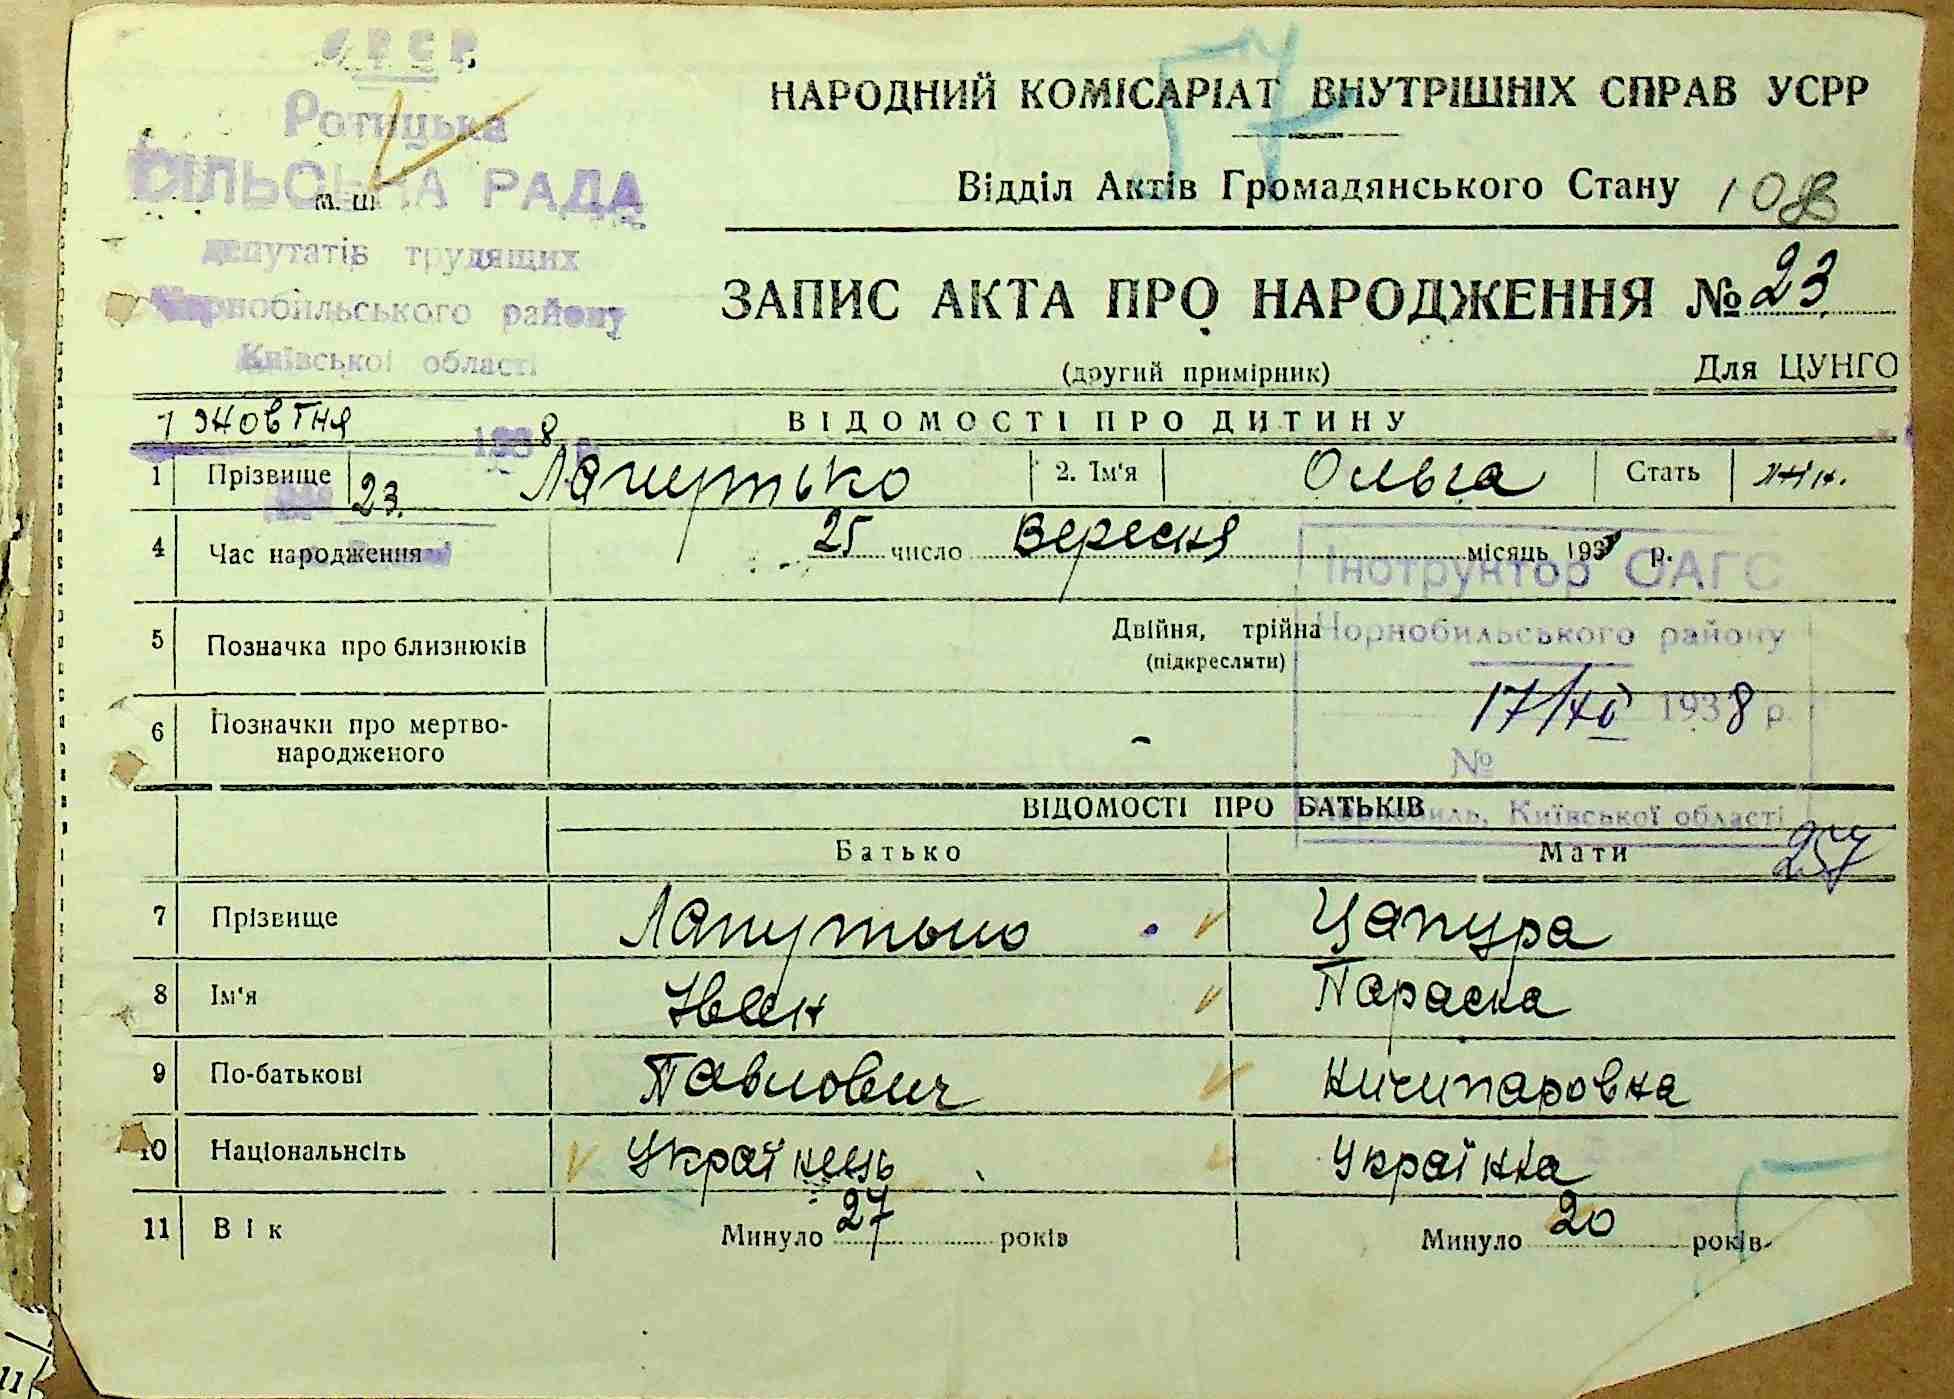 УРСР
Ротицька
СІЛЬСЬКА РАДА
депутатів трудящих
Чорнобильського району
Київської області
7 жовтня 1938 р.
23.
57
НАРОДНИЙ КОМІСАРІАТ ВНУТРІШНІХ СПРАВ УСРР
Відділ Актів Громадянського Стану 108
ЗАПИС АКТА ПРО НАРОДЖЕННЯ № 23
(другий примірник) Для ЦУНГО
ВІДОМОСТІ ПРО ДИТИНУ
1 Прізвище Лапутько 2. Ім'я Ольга Стать жін.
4 Час народження 25 число Вересня місяць 1938 р.
Інструктор ОАГС
5 Позначка про близнюків Двійня, трійня
(підкреслити)
Чорнобильського району
17/XII 1938 р.
6 Позначки про мертво-
народженого -
№
Чорнобиль, Київської області
ВІДОМОСТІ ПРО БАТЬКІВ
Батько Мати 257
7 Прізвище Лапутько Цапура
8 Ім'я Іван Параска
9 По-батькові Павлович Ничипаровна
10 Національнсіть Українець Українка
11 Вік Минуло 27 років Минуло 20 років
11